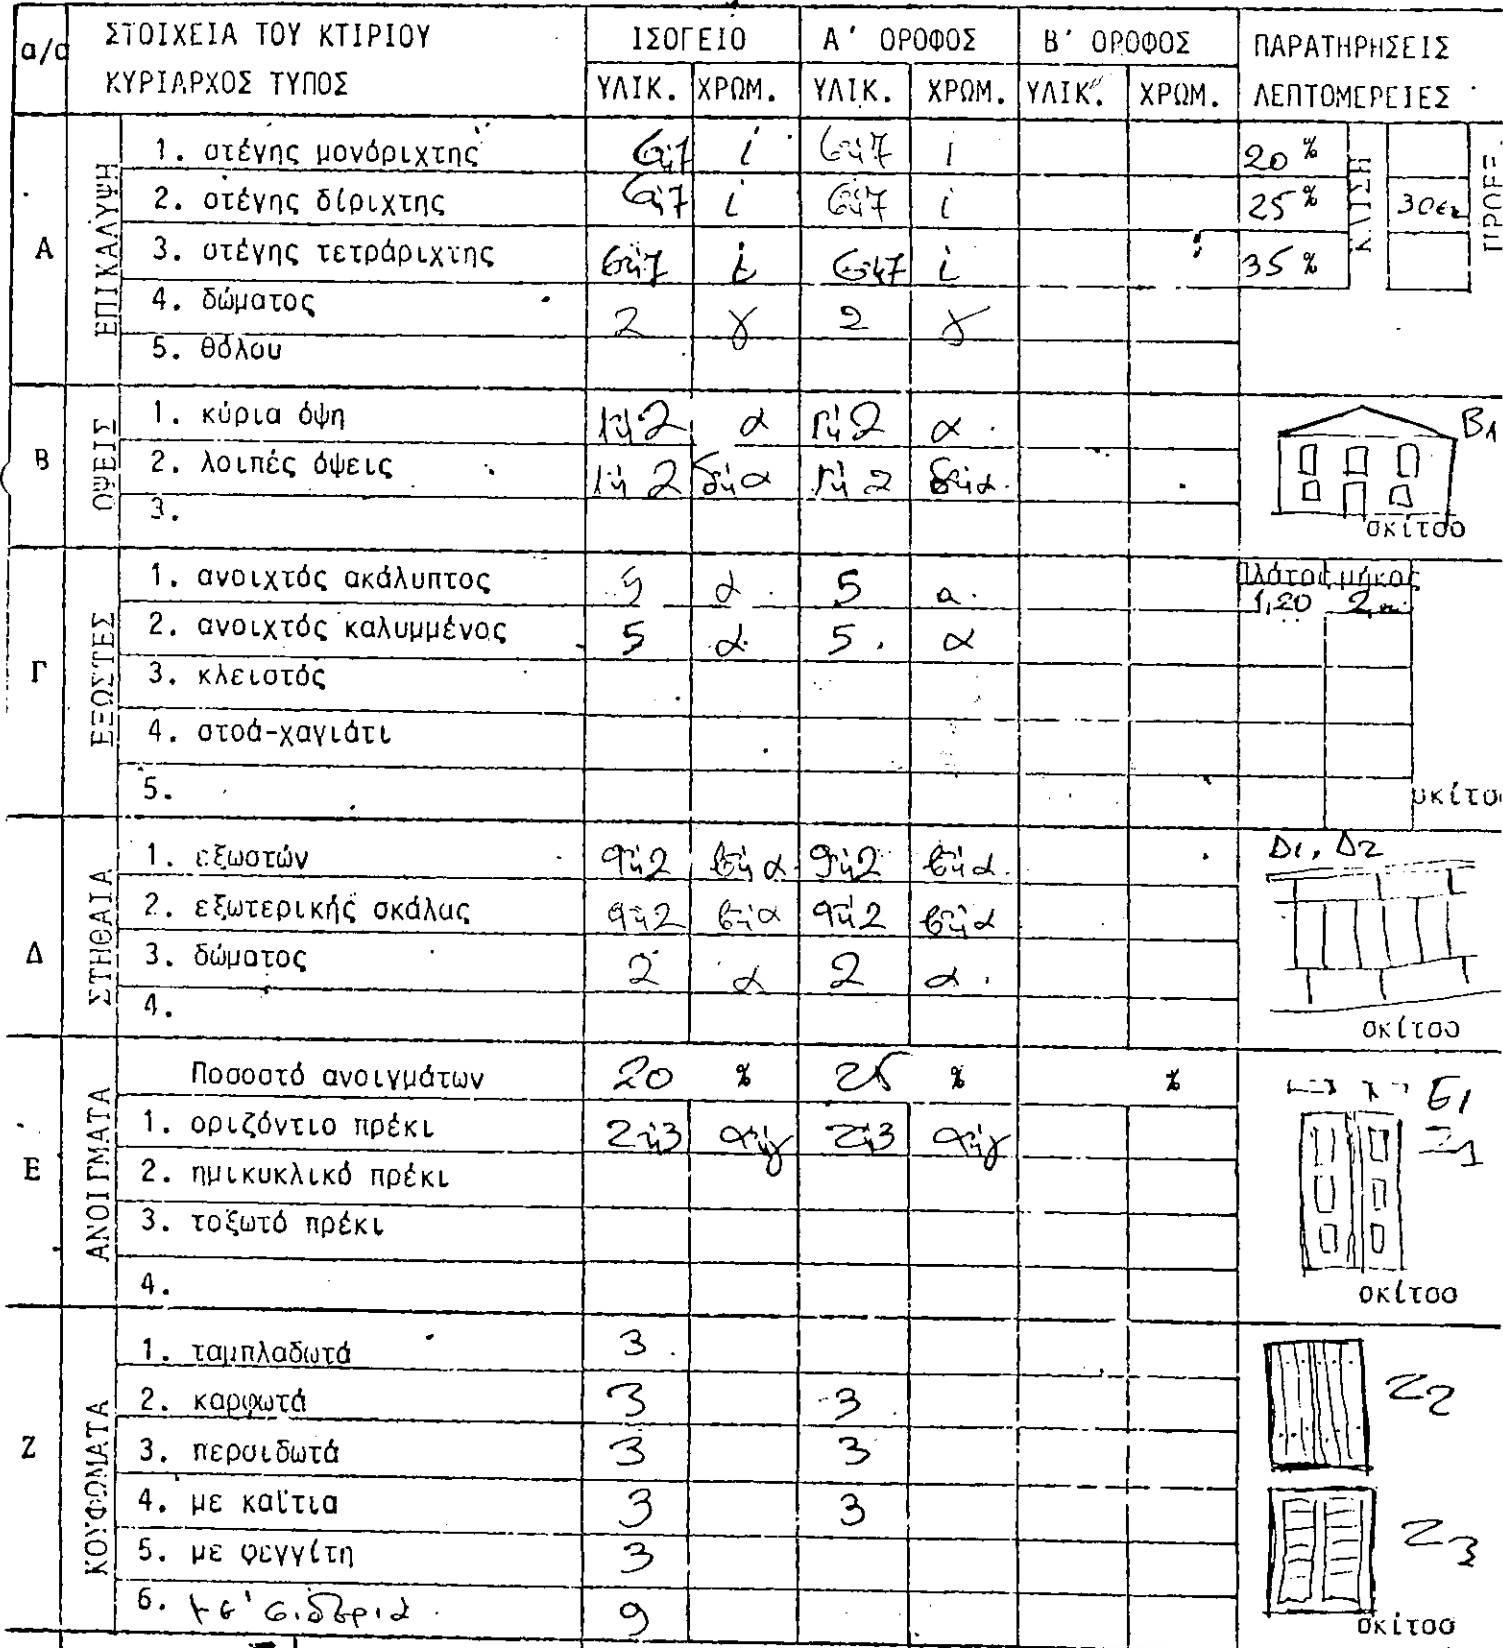 α/α ΣΤΟΙΧΕΙΑ ΤΟΥ ΚΤΙΡΙΟΥ ΙΣΟΓΕΙΟ Α' ΟΡΟΦΟΣ Β' ΟΡΟΦΟΣ ΠΑΡΑΤΗΡΗΣΕΙΣ
ΚΥΡΙΑΡΧΟΣ ΤΥΠΟΣ ΥΛΙΚ. ΧΡΩΜ. ΥΛΙΚ. ΧΡΩΜ. ΥΛΙΚ. ΧΡΩΜ. ΛΕΠΤΟΜΕΡΕΙΕΣ
Α ΕΠΙΚΑΛΥΨΗ ΚΛΙΣΗ ΠΡΟΕΞ.
1. στέγης μονόριχτης 6ή7 i 6ή7 i 20 %
2. στέγης δίριχτης 6ή7 i 6ή7 i 25 % 30εκ
3. στέγης τετράριχτης 6ή7 i 6ή7 i 35 %
4. δώματος 2 γ 2 γ
5. θόλου
Β ΟΨΕΙΣ
1. κύρια όψη 1ή2 α 1ή2 α. Β1
2. λοιπές όψεις 1ή2 δήα 1ή2 δήα.
3.
σκίτσο
Γ ΕΞΩΣΤΕΣ
Πλάτος μήκος
1. ανοιχτός ακάλυπτος 5 α. 5 α. 1,20 2μ.
2. ανοιχτός καλυμμένος 5 α. 5. α
3. κλειστός
4. στοά-χαγιάτι
5.
σκίτσο
Δ ΣΤΗΘΑΙΑ
1. εξωστών 9ή2 βήα 9ή2 βήα. Δ1, Δ2
2. εξωτερικής σκάλας 9ή2 βήα 9ή2 βήα
3. δώματος 2 α 2 α.
4.
σκίτσο
Ε ΑΝΟΙΓΜΑΤΑ
Ποσοστό ανοιγμάτων 20 % 25 % % Ε1
1. οριζόντιο πρέκι 2ή3 αήγ 2ή3 αήγ Ζ1
2. ημικυκλικό πρέκι
3. τοξωτό πρέκι
4.
σκίτσο
Ζ ΚΟΥΦΩΜΑΤΑ
1. ταμπλαδωτά 3
2. καρφωτά 3 3 Ζ2
3. περσιδωτά 3 3
4. με καΐτια 3 3
5. με φεγγίτη 3 Ζ3
6. με σιδεριά 9
σκίτσο